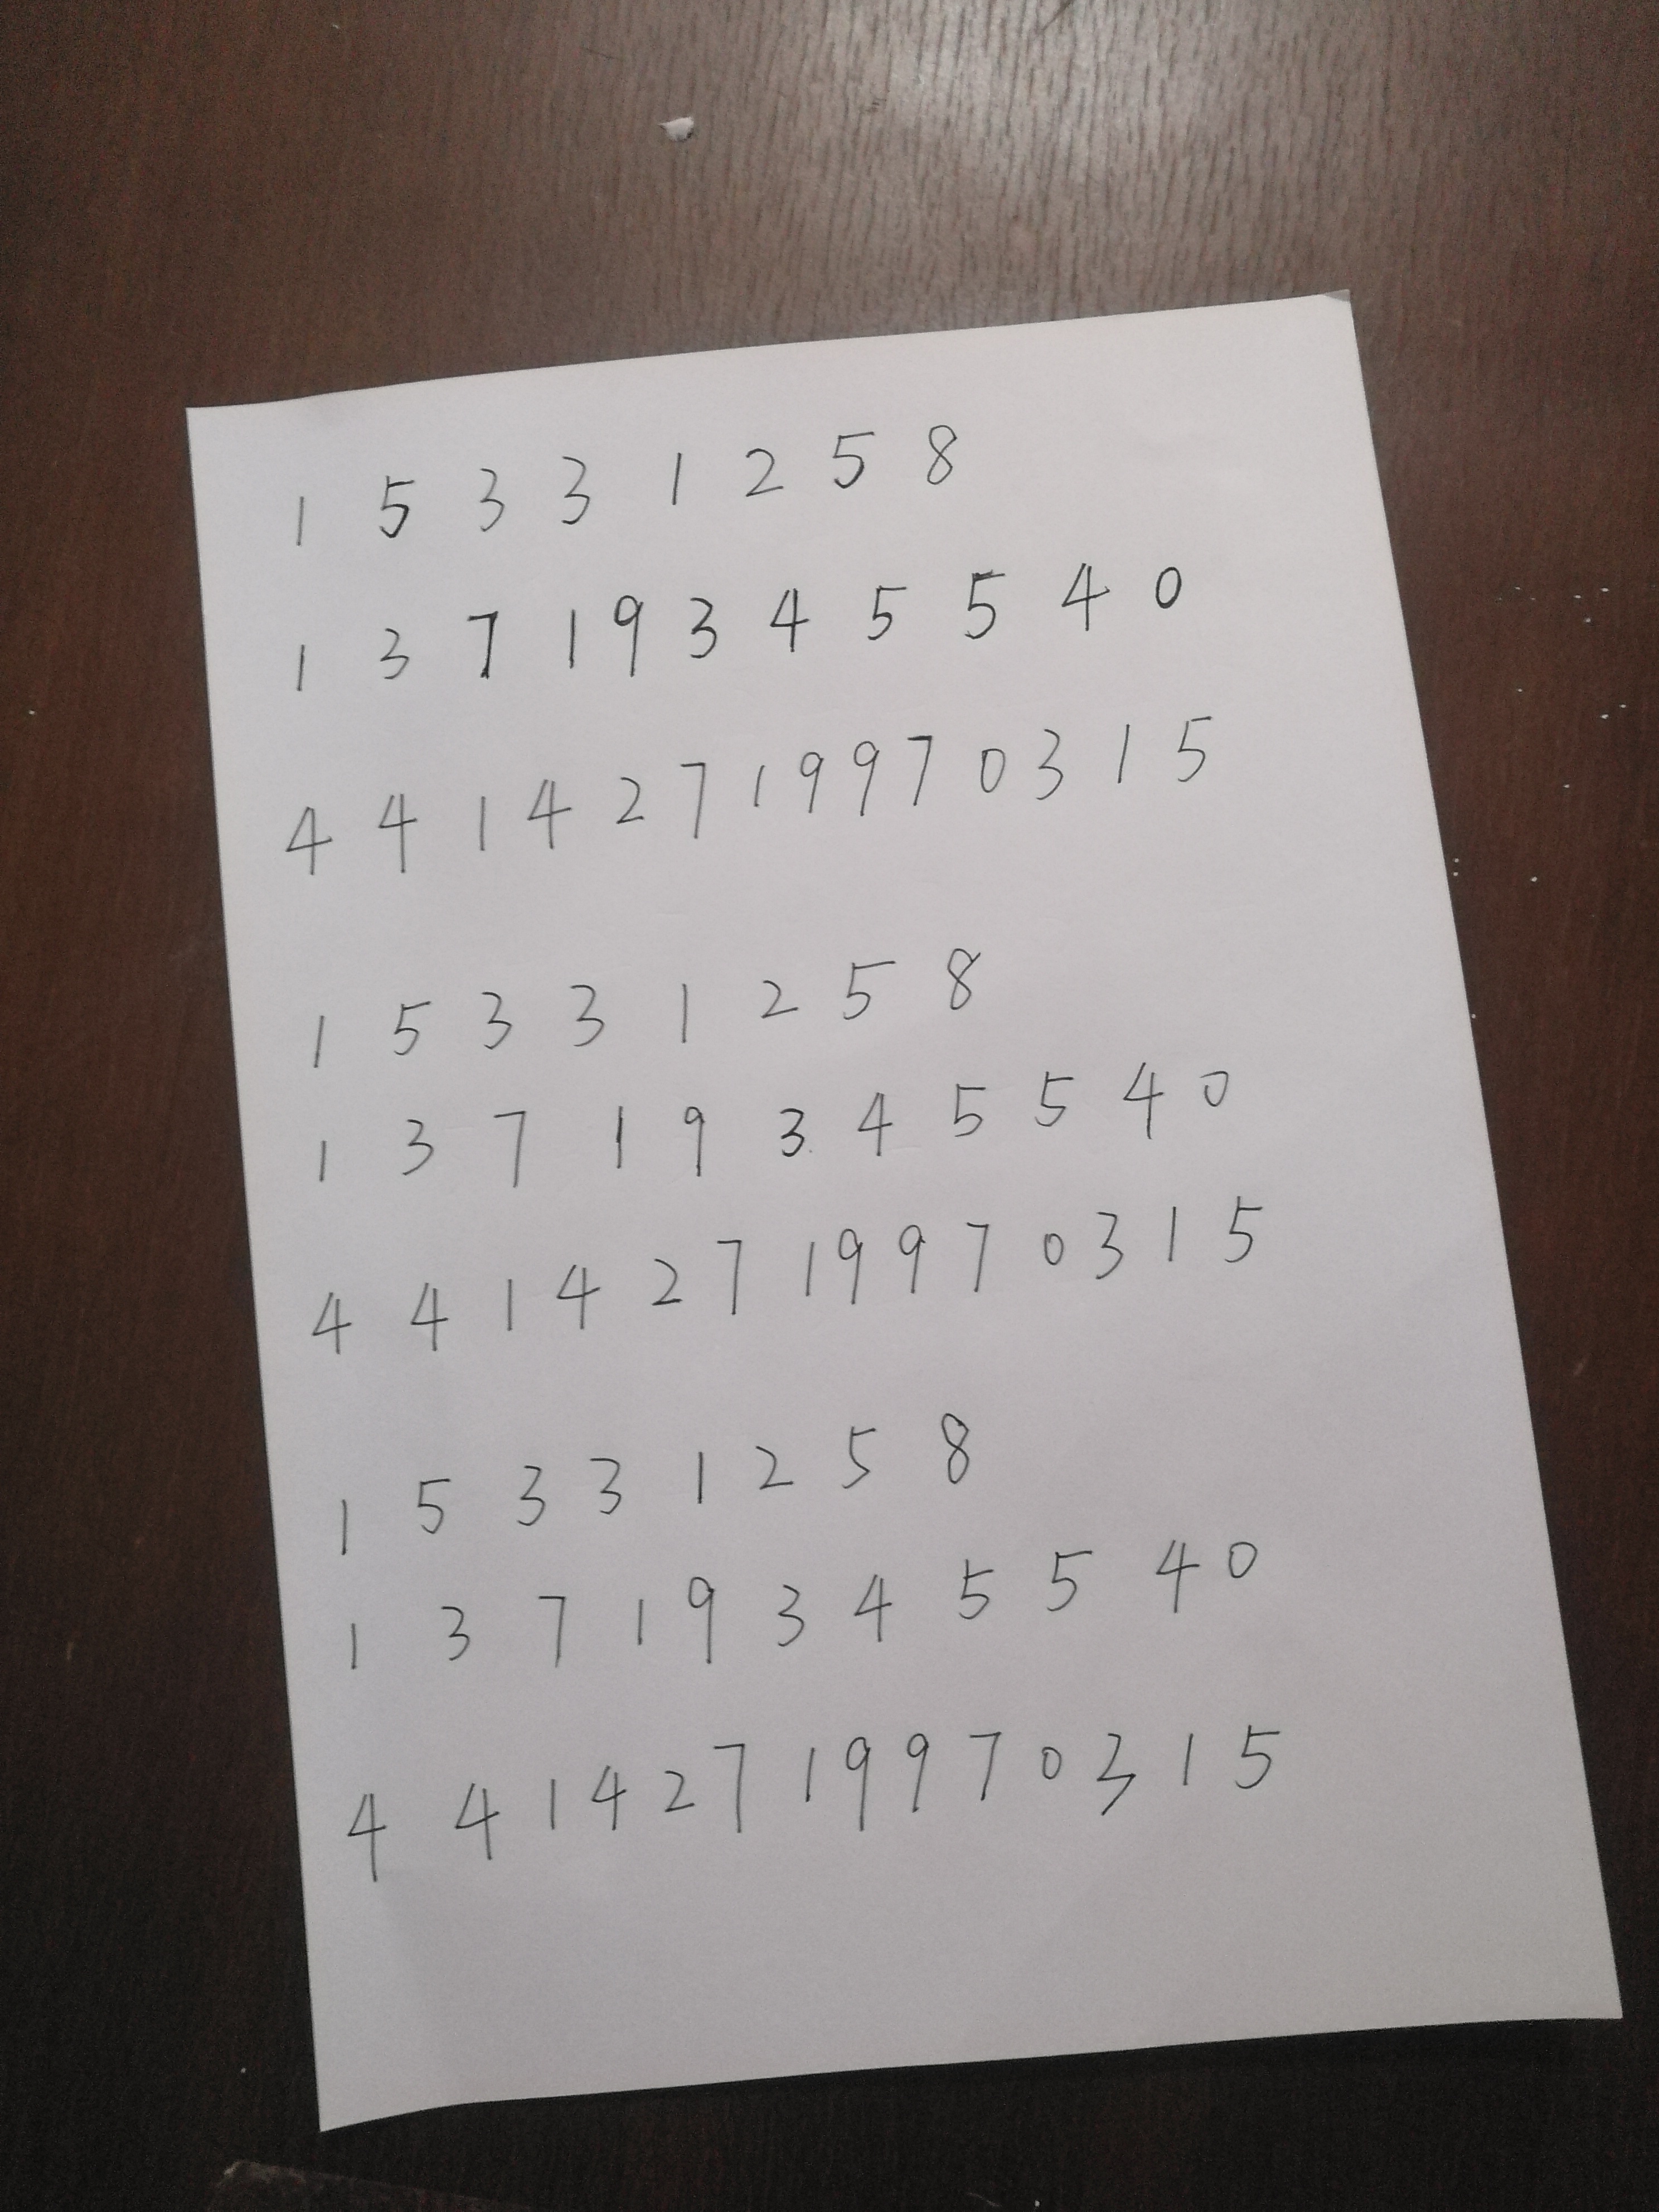 1 5 3 3 1 2 5 8
1 3 7 1 9 3 4 5 5 4 0
4 4 1 4 2 7 1 9 9 7 0 3 1 5
1 5 3 3 1 2 5 8
1 3 7 1 9 3 4 5 5 4 0
4 4 1 4 2 7 1 9 9 7 0 3 1 5
1 5 3 3 1 2 5 8
1 3 7 1 9 3 4 5 5 4 0
4 4 1 4 2 7 1 9 9 7 0 3 1 5